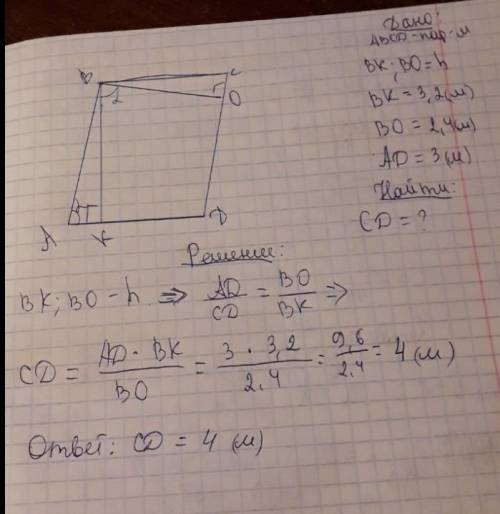 Дано:
ABCD - пар-м
BK; BO = h
BK = 3,2 (м)
BO = 2,4 (м)
AD = 3 (м)
Найти:
CD = ?
B
C
2
O
A
K
D
Решение:
BK; BO - h ⇒ AD/CD = BO/BK ⇒
CD = AD · BK / BO = 3 · 3,2 / 2.4 = 9,6 / 2.4 = 4 (м)
Ответ: CD = 4 (м)